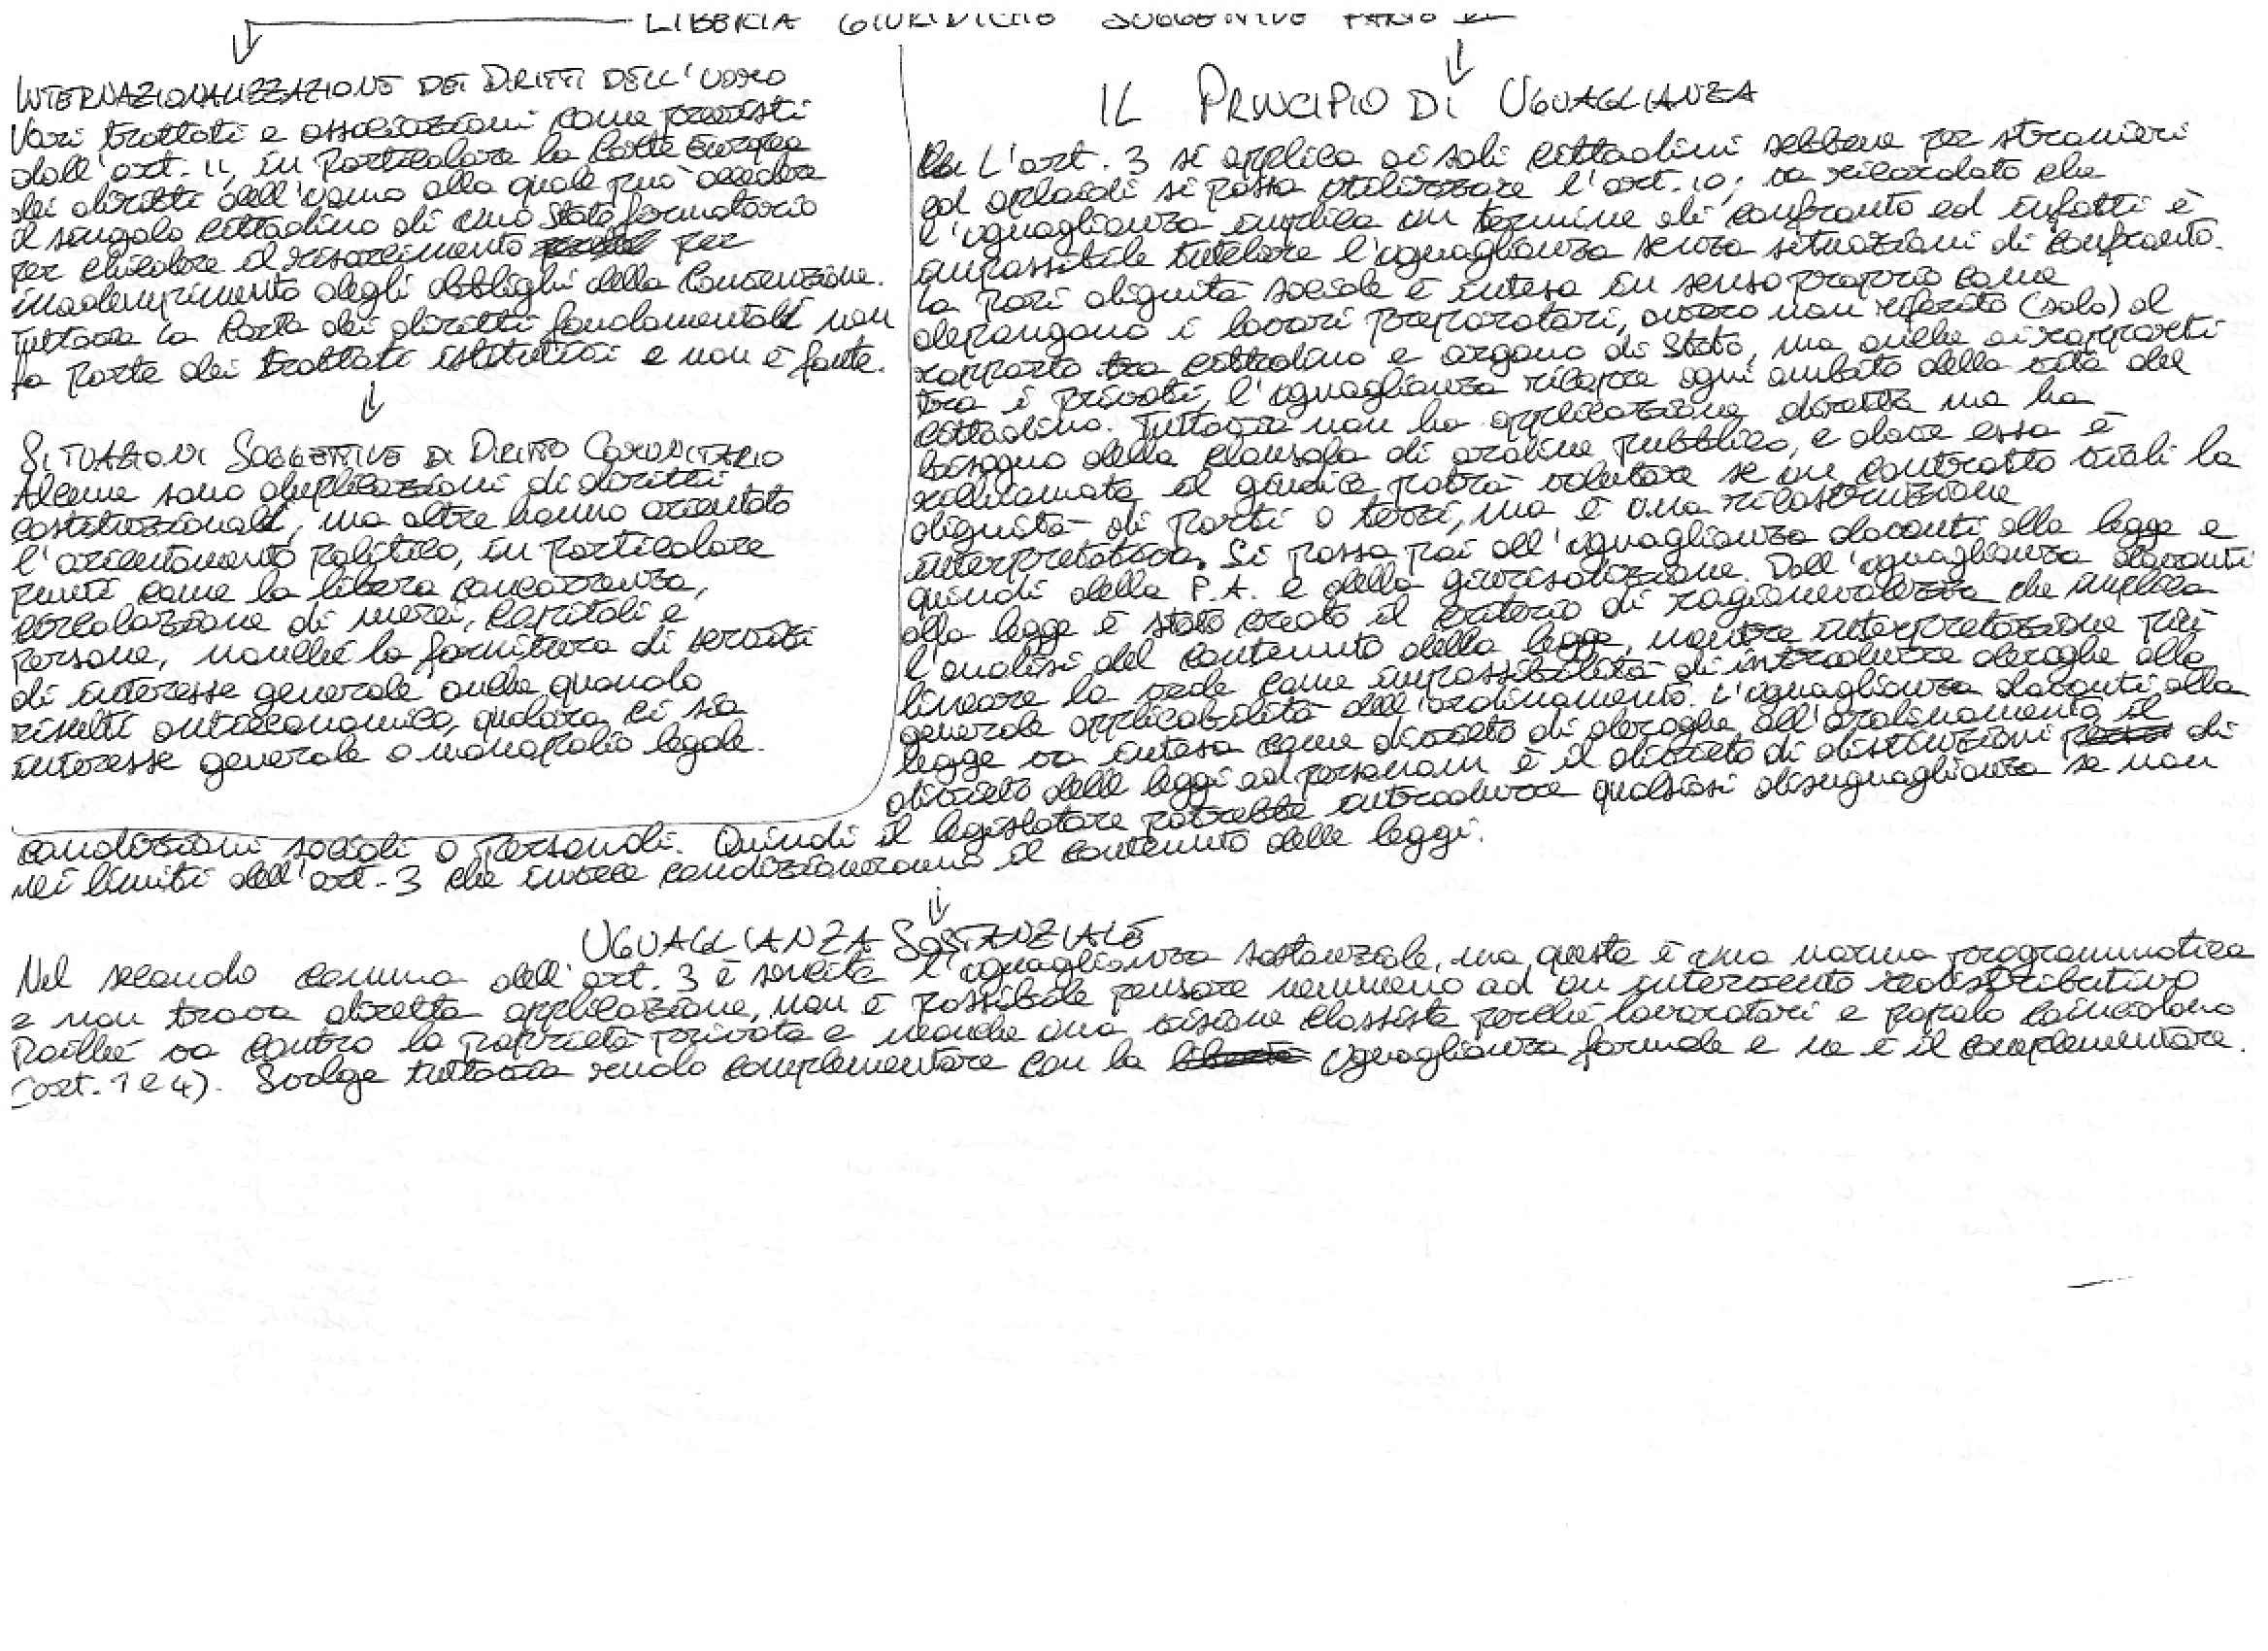 GIURIDICHE SOGGETTIVE PARTE
INTERNAZIONALIZZAZIONE DEI DIRITTI DELL'UOMO
Vari trattati e associazioni come previsti
dall'art. 11, in particolare la Corte Europea
dei diritti dell'uomo alla quale può accedere
il singolo cittadino di uno stato firmatario
per chiedere il risarcimento per
inadempimento degli obblighi della Convenzione.
Tuttavia la Carta dei diritti fondamentali non
fa parte dei trattati istitutivi e non è fonte.
SITUAZIONI SOGGETTIVE DI DIRITTO COMUNITARIO
Alcune sono duplicazioni di diritti
costituzionali, ma altre hanno orientato
l'orientamento politico, in particolare
punti come la libera concorrenza,
circolazione di merci, capitali e
persone, nonché la fornitura di servizi
di interesse generale anche quando
risulti antieconomico, qualora ci sia
interesse generale o monopolio legale.
IL PRINCIPIO DI UGUAGLIANZA
L'art. 3 si applica ai soli cittadini sebbene per stranieri
ed apolidi si possa utilizzare l'art. 10; va ricordato che
l'uguaglianza implica un termine di confronto ed infatti è
impossibile tutelare l'uguaglianza senza situazioni di confronto.
La pari dignità sociale è intesa in senso proprio come
depongono i lavori preparatori, ovvero non riferito (solo) al
rapporto tra cittadino e organo di Stato, ma anche ai rapporti
tra i privati, l'uguaglianza ricopre ogni ambito della vita del
cittadino. Tuttavia non ha applicazione diretta ma ha
bisogno della clausola di ordine pubblico, e dove essa è
richiamata il giudice potrà valutare se un contratto violi la
dignità di parti o terzi, ma è una ricostruzione
interpretativa. Si passa poi all'uguaglianza davanti alla legge e
quindi della P.A. e della giurisdizione. Dall'uguaglianza davanti
alla legge è stato creato il criterio di ragionevolezza che implica
l'analisi del contenuto della legge, mentre interpretazione più
lineare la vede come impossibilità di introdurre deroghe alla
generale applicabilità dell'ordinamento. L'uguaglianza davanti alla
legge va intesa come divieto di deroghe all'ordinamento il
divieto delle leggi ad personam è il divieto di distinzioni di
condizioni sociali o personali. Quindi il legislatore potrebbe introdurre qualsiasi disuguaglianza se non
nei limiti dell'art. 3 che invece condizioneranno il contenuto delle leggi.
UGUAGLIANZA SOSTANZIALE
Nel secondo comma dell'art. 3 è sancita l'uguaglianza sostanziale, ma questa è una norma programmatica
e non trova diretta applicazione, non è possibile pensare nemmeno ad un intervento redistributivo
poiché va contro la proprietà privata e neanche una visione classista perché lavoratori e popolo coincidono
(art. 1 e 4). Svolge tuttavia ruolo complementare con la uguaglianza formale e ne è il complementare.